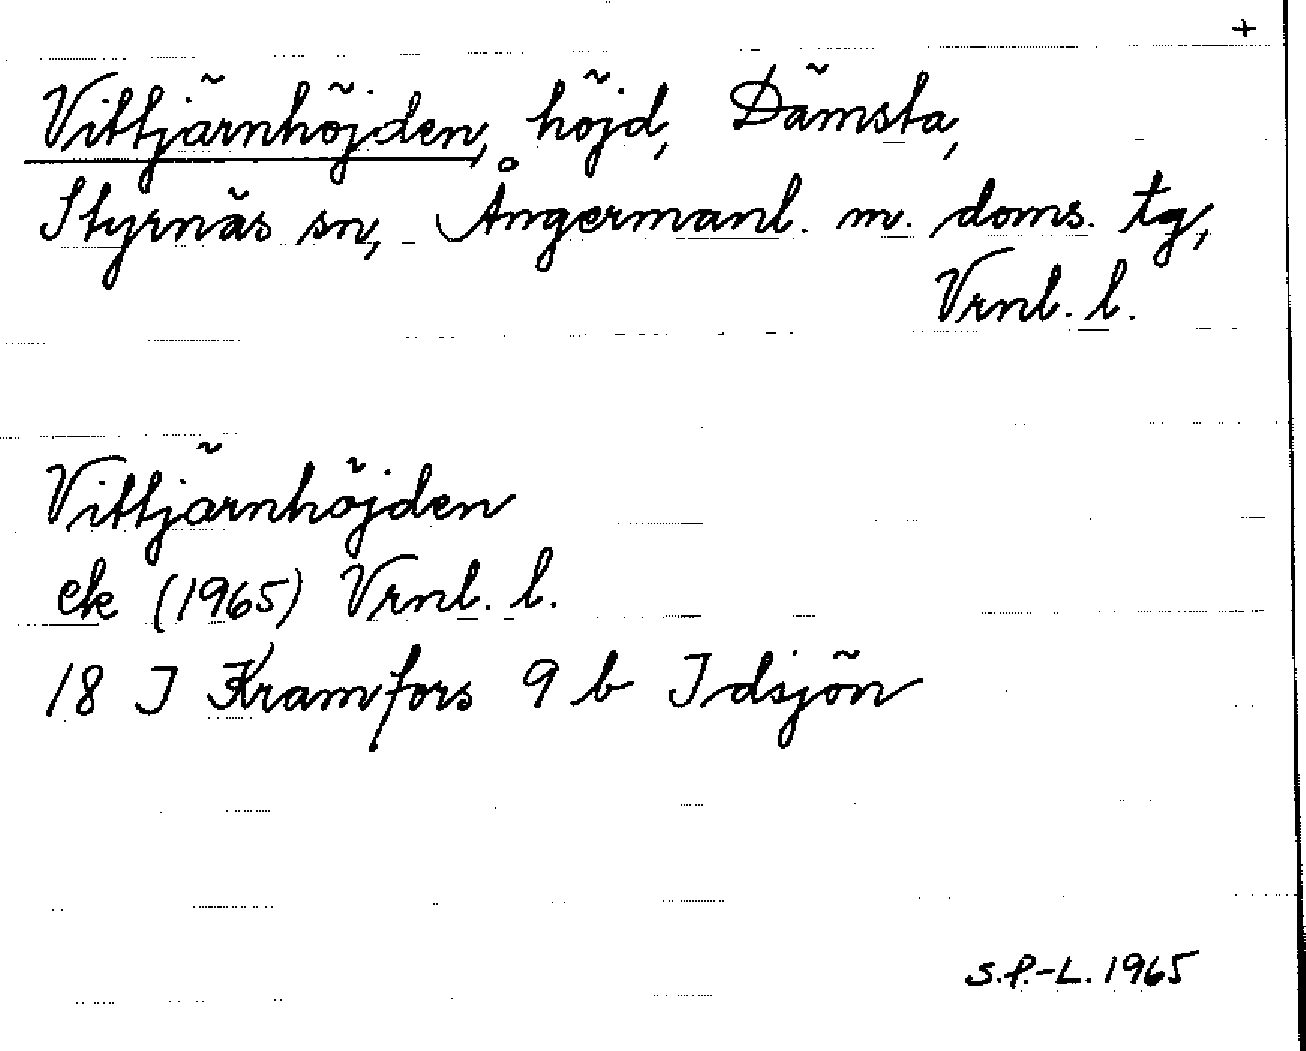 +
Vittjärnhöjden, höjd, Dämsta,
Styrnäs sn, Ångermanl. m. doms. tg,
Vrnl. l.
Vittjärnhöjden
ek (1965) Vrnl. l.
18 I Kramfors 9 b Idsjön
S.P.-L. 1965